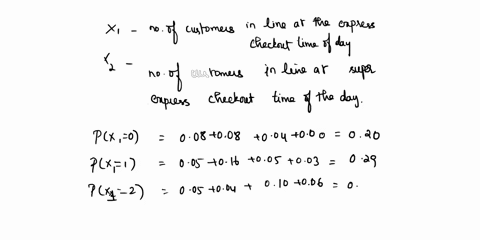 X1 - no. of customers in line at the express
checkout time of day
X2 - no. of customers in line at super
express checkout time of the day.
P(X1=0) = 0.08+0.08 +0.04+0.00 = 0.20
P(X1=1) = 0.05+0.16 +0.05 +0.03 = 0.29
P(X1=2) = 0.05+0.04 + 0.10+0.06 = 0.